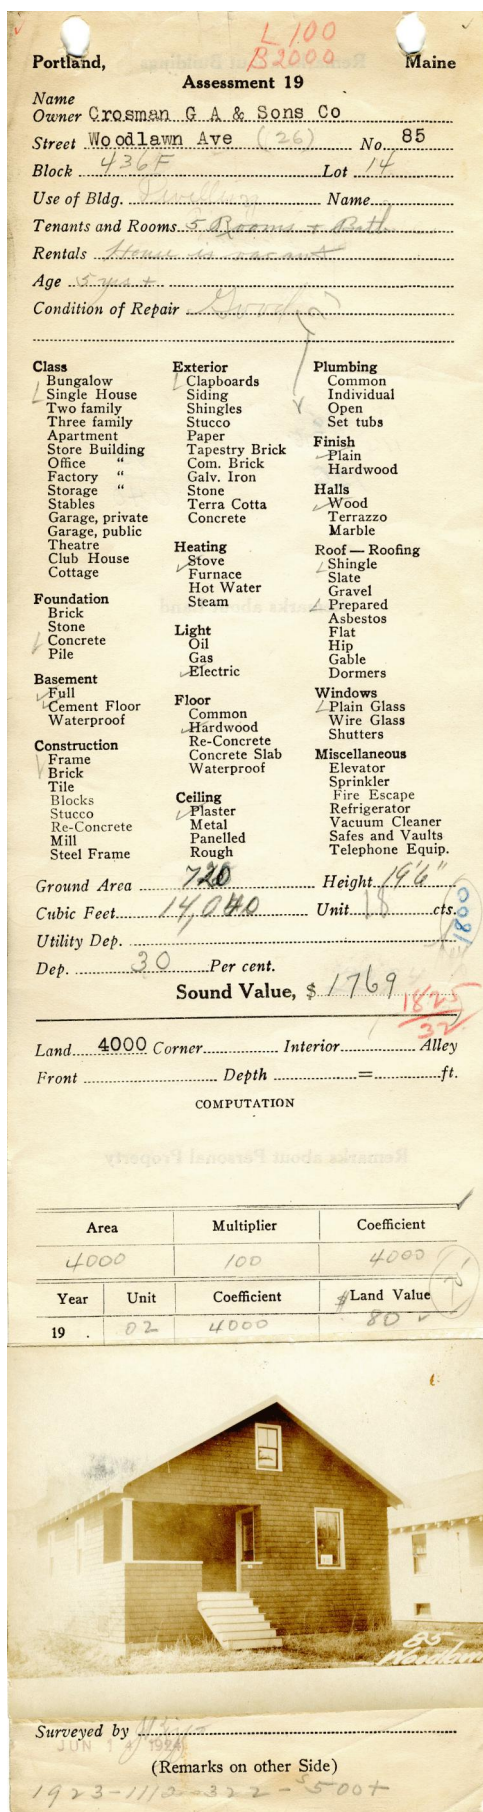 L 100
B 2000
Portland, Maine
Assessment 19
Name
Owner Crosman G A & Sons Co
Street Woodlawn Ave (26) No. 85
Block 436F Lot 14
Use of Bldg. Dwelling Name
Tenants and Rooms 5 Rooms + Bath
Rentals House is vacant
Age 5 yrs +
Condition of Repair Good
Class
Bungalow
Single House
Two family
Three family
Apartment
Store Building
Office "
Factory "
Storage "
Stables
Garage, private
Garage, public
Theatre
Club House
Cottage
Foundation
Brick
Stone
Concrete
Pile
Basement
Full
Cement Floor
Waterproof
Construction
Frame
Brick
Tile
Blocks
Stucco
Re-Concrete
Mill
Steel Frame
Exterior
Clapboards
Siding
Shingles
Stucco
Paper
Tapestry Brick
Com. Brick
Galv. Iron
Stone
Terra Cotta
Concrete
Heating
Stove
Furnace
Hot Water
Steam
Light
Oil
Gas
Electric
Floor
Common
Hardwood
Re-Concrete
Concrete Slab
Waterproof
Ceiling
Plaster
Metal
Panelled
Rough
Plumbing
Common
Individual
Open
Set tubs
Finish
Plain
Hardwood
Halls
Wood
Terrazzo
Marble
Roof — Roofing
Shingle
Slate
Gravel
Prepared
Asbestos
Flat
Hip
Gable
Dormers
Windows
Plain Glass
Wire Glass
Shutters
Miscellaneous
Elevator
Sprinkler
Fire Escape
Refrigerator
Vacuum Cleaner
Safes and Vaults
Telephone Equip.
Ground Area 720 Height 19'6"
Cubic Feet 14,040 Unit 18 cts.
1800
Utility Dep.
Dep. 30 Per cent.
Sound Value, $ 1769
1825
32
Land 4000 Corner Interior Alley
Front Depth = ft.
COMPUTATION
Remarks about Personal Property
Area Multiplier Coefficient
4000 100 4000
Year Unit Coefficient $ Land Value
19 . 02 4000 80
85
Woodlawn
Surveyed by
JUN 14 1924
(Remarks on other Side)
1923-1112-322-$500+